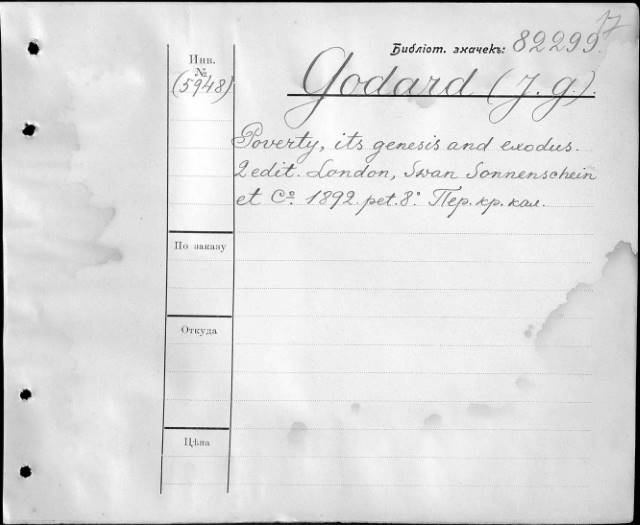 17
Библіот. значекъ: 82299
Инв.
№
(5948)
Godard (J. G.).
Poverty, its genesis and exodus.
2 edit. London, Swan Sonnenschein
et Cº. 1892. pet. 8º. Пер. кр. кал.
По заказу
Откуда
Цѣна